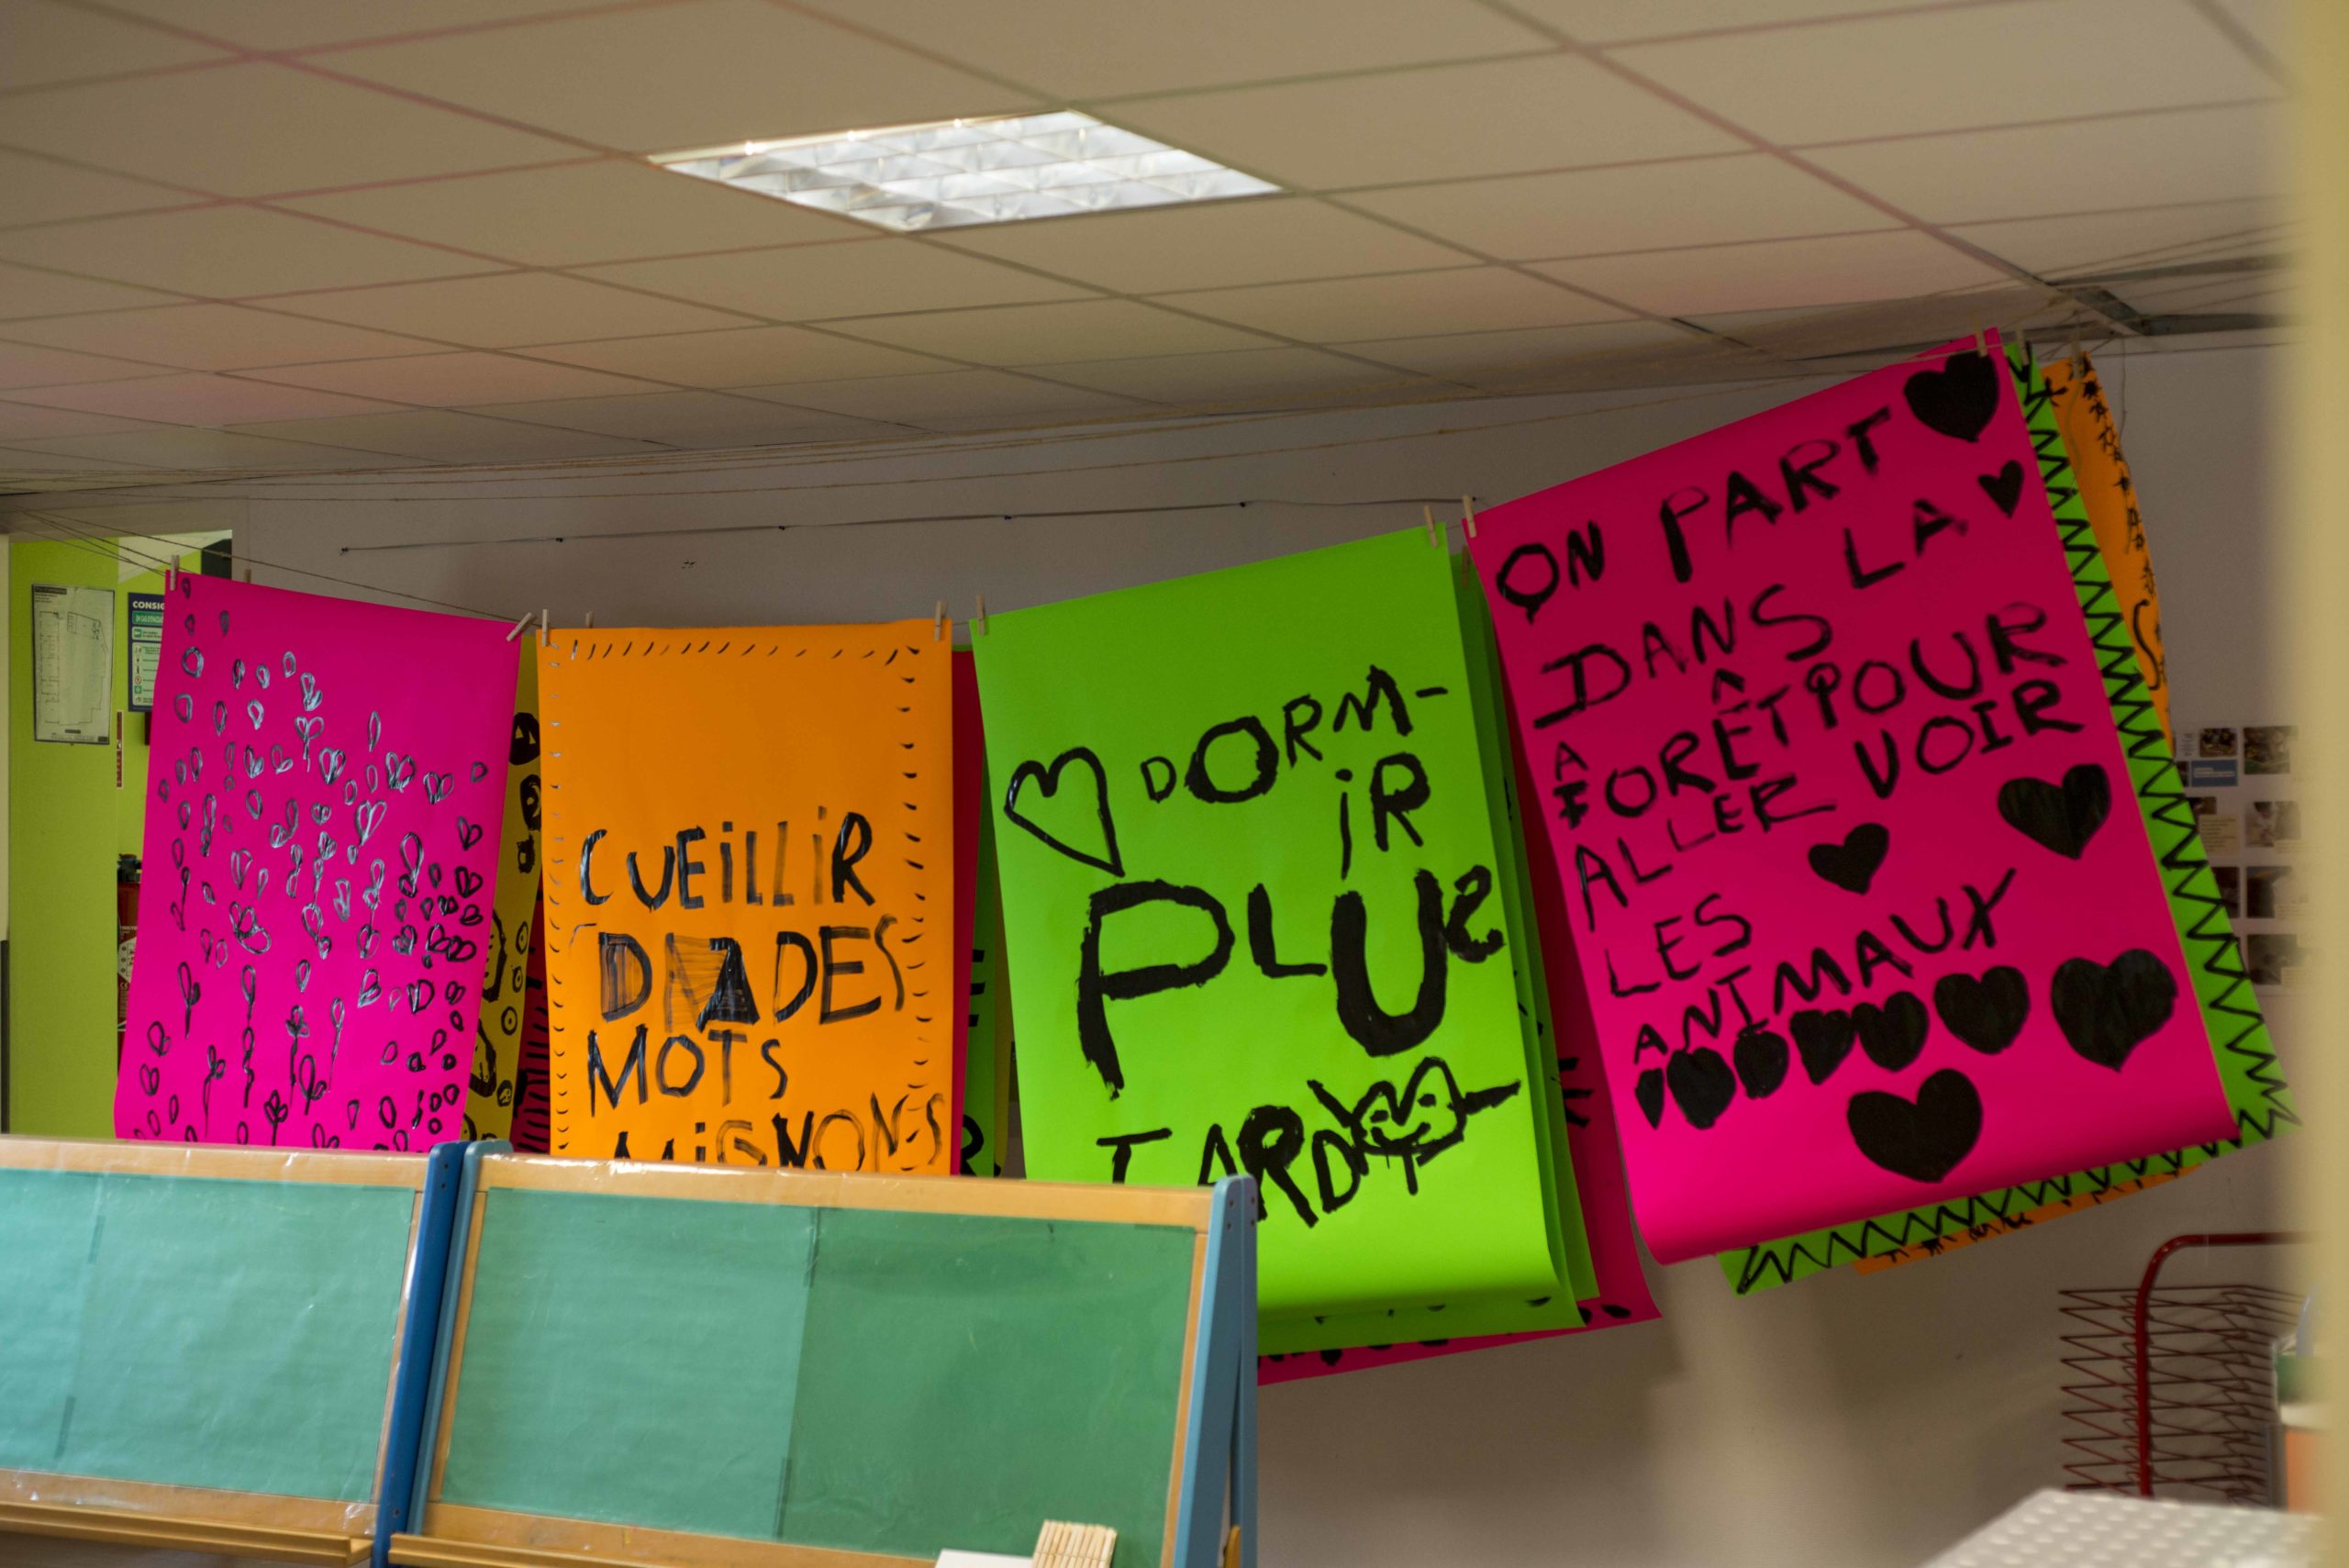 CONSIG
CUEiLLiR
D DES
MOTS
MiGNONS
DORM-
iR
PLUS
TARD
ON PART
DANS LA
FORÊT POUR
ALLER VOIR
LES
ANIMAUX